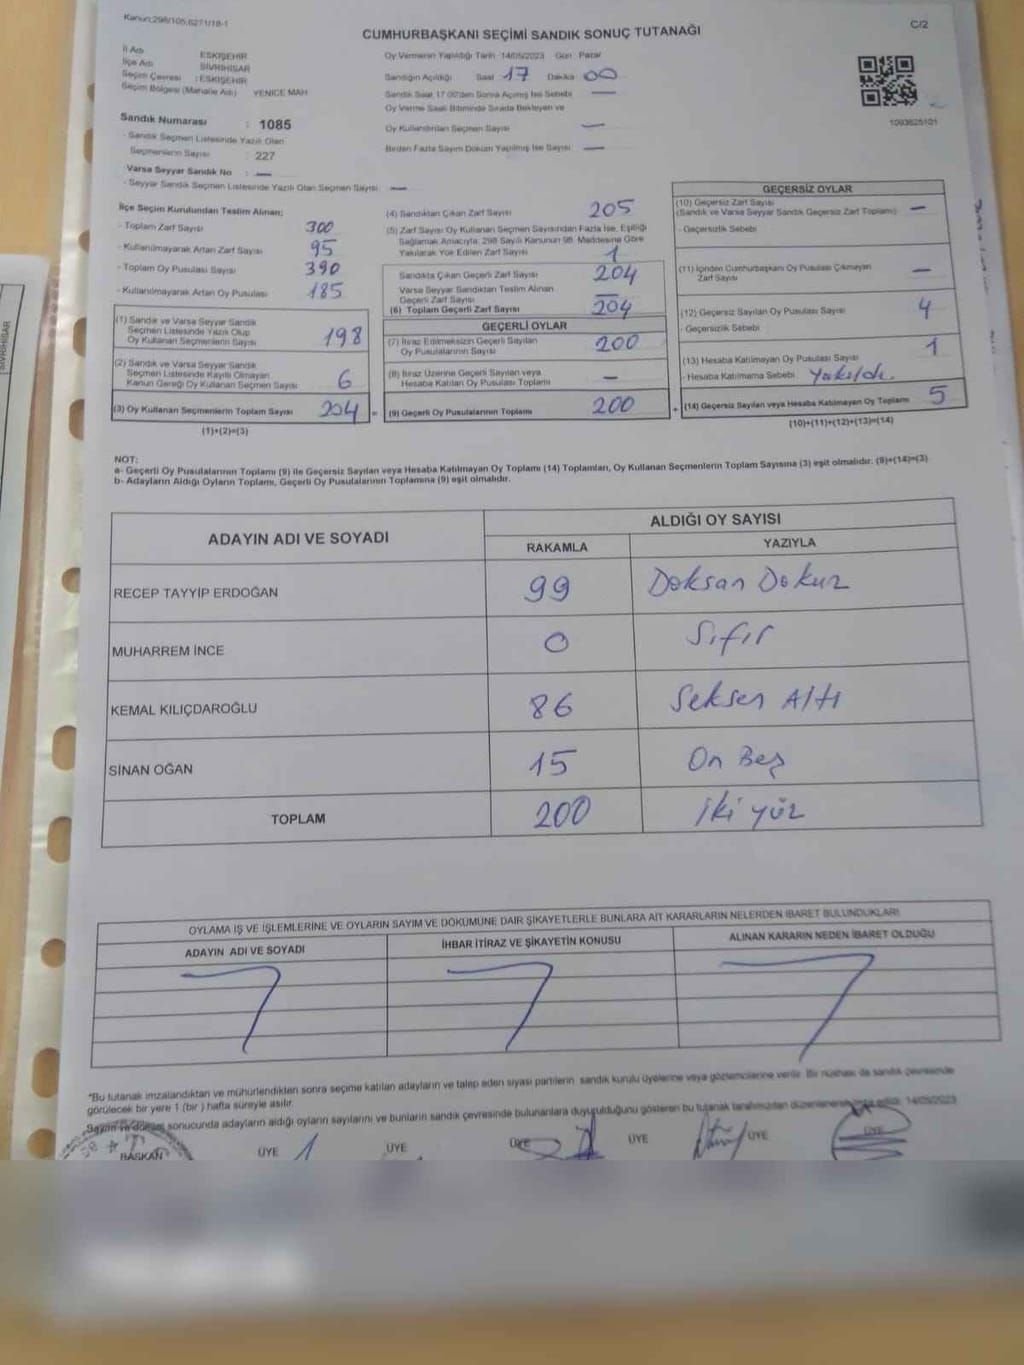 Kanun:298/105,6271/18-1
C/2
CUMHURBAŞKANI SEÇİMİ SANDIK SONUÇ TUTANAĞI
İl Adı ESKİŞEHİR
İlçe Adı SİVRİHİSAR
Seçim Çevresi : ESKİŞEHİR
Seçim Bölgesi (Mahalle Adı) YENİCE MAH
Sandık Numarası : 1085
- Sandık Seçmen Listesinde Yazılı Olan
Seçmenlerin Sayısı : 227
Varsa Seyyar Sandık No : —
- Seyyar Sandık Seçmen Listesinde Yazılı Olan Seçmen Sayısı —
Oy Vermenin Yapıldığı Tarih 14/05/2023 Gün Pazar
Sandığın Açıldığı Saat 17 Dakika 00
Sandık Saat 17:00'den Sonra Açılmış İse Sebebi —
Oy Verme Saati Bitiminde Sırada Bekleyen ve
Oy Kullandırılan Seçmen Sayısı —
Birden Fazla Sayım Döküm Yapılmış İse Sayısı —
1093625101
İlçe Seçim Kurulundan Teslim Alınan;
- Toplam Zarf Sayısı 300
- Kullanılmayarak Artan Zarf Sayısı 95
- Toplam Oy Pusulası Sayısı 390
- Kullanılmayarak Artan Oy Pusulası 185
(1) Sandık ve Varsa Seyyar Sandık
Seçmen Listesinde Yazılı Olup
Oy Kullanan Seçmenlerin Sayısı 198
(2) Sandık ve Varsa Seyyar Sandık
Seçmen Listesinde Kayıtlı Olmayan
Kanun Gereği Oy Kullanan Seçmen Sayısı 6
(3) Oy Kullanan Seçmenlerin Toplam Sayısı 204 =
(1)+(2)=(3)
(4) Sandıktan Çıkan Zarf Sayısı 205
(5) Zarf Sayısı Oy Kullanan Seçmen Sayısından Fazla İse, Eşitliği
Sağlamak Amacıyla, 298 Sayılı Kanunun 98. Maddesine Göre
Yakılarak Yok Edilen Zarf Sayısı 1
Sandıkta Çıkan Geçerli Zarf Sayısı 204
Varsa Seyyar Sandıktan Teslim Alınan
Geçerli Zarf Sayısı —
(6) Toplam Geçerli Zarf Sayısı 204
GEÇERLİ OYLAR
(7) İtiraz Edilmeksizin Geçerli Sayılan
Oy Pusulalarının Sayısı 200
(8) İtiraz Üzerine Geçerli Sayılan veya
Hesaba Katılan Oy Pusulası Toplamı —
(9) Geçerli Oy Pusulalarının Toplamı 200 +
GEÇERSİZ OYLAR
(10) Geçersiz Zarf Sayısı
(Sandık ve Varsa Seyyar Sandık Geçersiz Zarf Toplamı) —
- Geçersizlik Sebebi
(11) İçinden Cumhurbaşkanı Oy Pusulası Çıkmayan
Zarf Sayısı —
(12) Geçersiz Sayılan Oy Pusulası Sayısı 4
- Geçersizlik Sebebi
(13) Hesaba Katılmayan Oy Pusulası Sayısı 1
- Hesaba Katılmama Sebebi Yakıldı.
(14) Geçersiz Sayılan veya Hesaba Katılmayan Oy Toplamı 5
(10)+(11)+(12)+(13)=(14)
NOT:
a- Geçerli Oy Pusulalarının Toplamı (9) ile Geçersiz Sayılan veya Hesaba Katılmayan Oy Toplamı (14) Toplamları, Oy Kullanan Seçmenlerin Toplam Sayısına (3) eşit olmalıdır. (9)+(14)=(3)
b- Adayların Aldığı Oyların Toplamı, Geçerli Oy Pusulalarının Toplamına (9) eşit olmalıdır.
ADAYIN ADI VE SOYADI ALDIĞI OY SAYISI
RAKAMLA YAZIYLA
RECEP TAYYİP ERDOĞAN 99 Doksan Dokuz
MUHARREM İNCE 0 Sıfır
KEMAL KILIÇDAROĞLU 86 Seksen Altı
SİNAN OĞAN 15 On Beş
TOPLAM 200 iki yüz
OYLAMA İŞ VE İŞLEMLERİNE VE OYLARIN SAYIM VE DÖKÜMÜNE DAİR ŞİKAYETLERLE BUNLARA AİT KARARLARIN NELERDEN İBARET BULUNDUKLARI
ADAYIN ADI VE SOYADI İHBAR İTİRAZ VE ŞİKAYETİN KONUSU ALINAN KARARIN NEDEN İBARET OLDUĞU
*Bu tutanak imzalandıktan ve mühürlendikten sonra seçime katılan adayların ve talep eden siyasi partilerin sandık kurulu üyelerine veya gözlemcilerine verilir. Bir nüshası da sandık çevresinde
görülecek bir yere 1 (bir) hafta süreyle asılır.
Sayım ve döküm sonucunda adayların aldığı oyların sayılarını ve bunların sandık çevresinde bulunanlara duyurulduğunu gösteren bu tutanak tarafımızdan düzenlenerek 14/05/2023
BAŞKAN ÜYE ÜYE ÜYE ÜYE ÜYE ÜYE